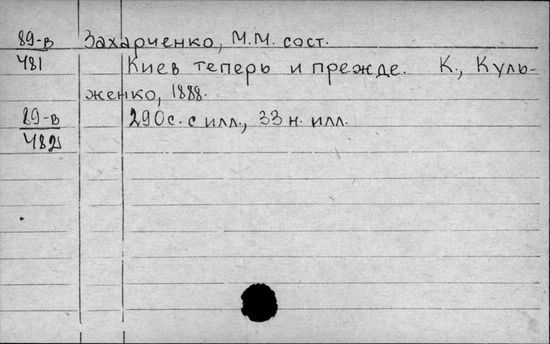 89-в Захарченко, М.М. сост.
481 Киев теперь и прежде. К., Куль-
женко, 1888.
89-в 290 с. с илл., 33 н. илл.
482